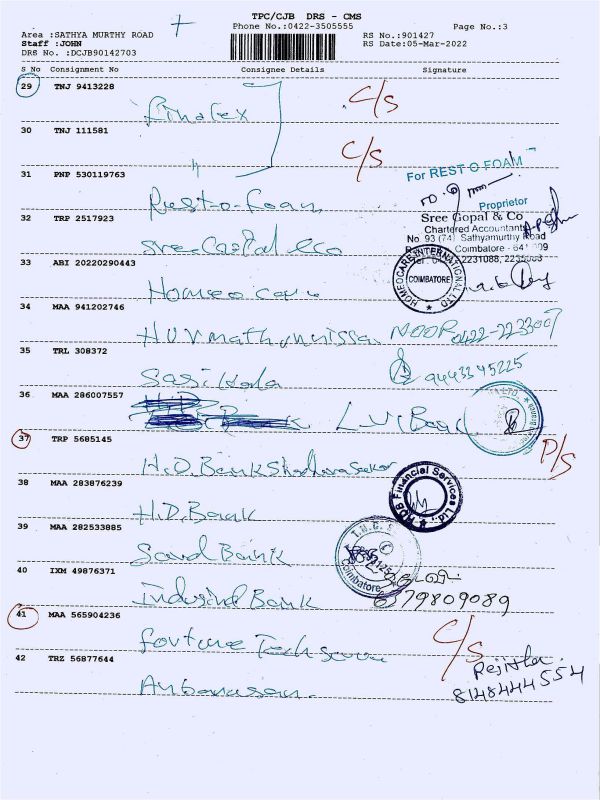 TPC/CJB DRS - CMS
Phone No.:0422-3505555 Page No.:3
Area :SATHYA MURTHY ROAD RS No.:901427
Staff :JOHN RS Date:05-Mar-2022
DRS No. :DCJB90142703
S No Consignment No Consignee Details Signature
29 TNJ 9413228
C/S
30 TNJ 111581
C/S
31 PNP 530119763
For REST O FOAM
Rest-o-Foam
Proprietor
32 TRP 2517923
Sree Gopal & Co
Chartered Accountants
No. 93 (74) Sathyamurthy Road
Coimbatore
2231088,
33 ABI 20220290443
HOMEOCARE INTERNATIONAL LTD
COIMBATORE
Homeo care
34 MAA 941202746
NOOR 0422-223300
35 TRL 308372
Sasikala 9443345225
36 MAA 286007557
37 TRP 5685145
P/S
H.D. Bank
38 MAA 283876239
HDB Financial Services Ltd.
H.D. Bank
39 MAA 282533885
Bank
40 IXM 49876371
Coimbatore
IndusInd Bank 6379809089
41 MAA 565904236
C/S
Fortune Tech
42 TRZ 56877644
8148444554